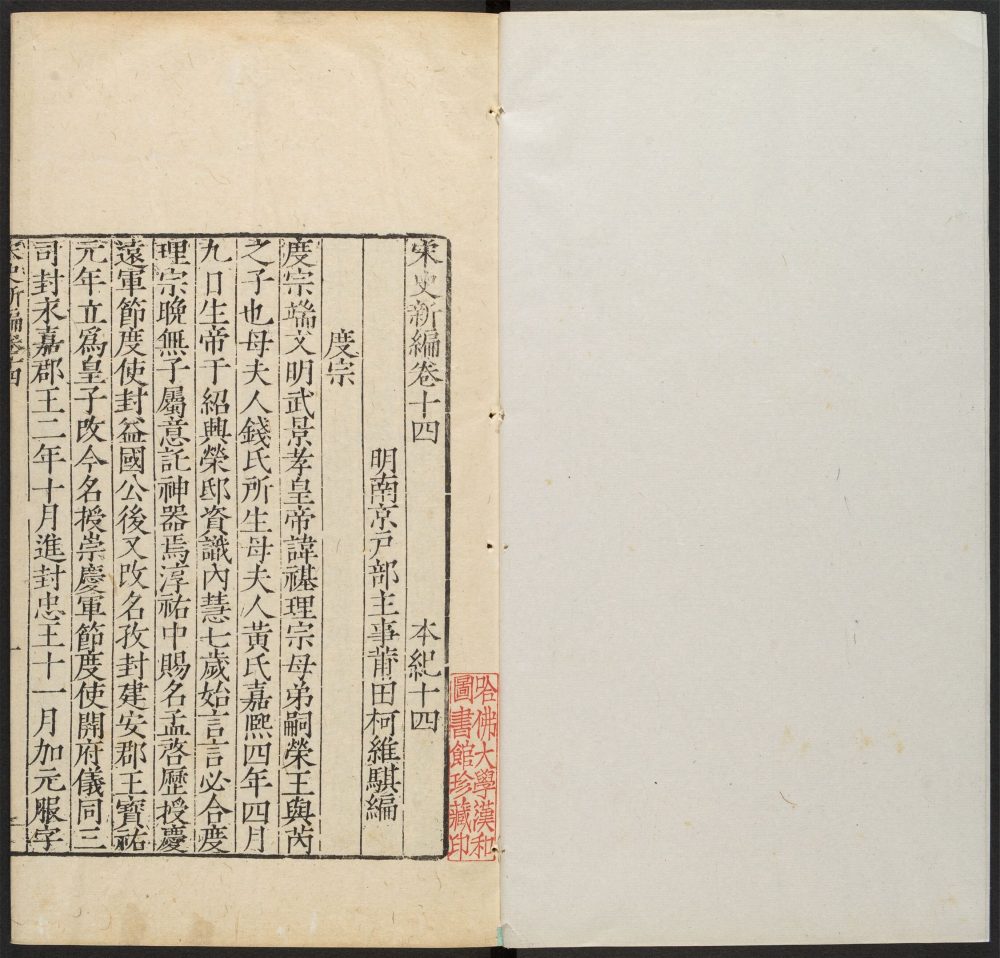 宋史新編卷十四　本紀十四
明南京戶部主事莆田柯維騏編
度宗
度宗端文明武景孝皇帝諱禥理宗母弟嗣榮王與芮
之子也母夫人錢氏所生母夫人黃氏嘉熈四年四月
九日生帝于紹興榮邸資識內慧七歲始言言必合度
理宗晚無子屬意託神器焉淳祐中賜名孟啓歷授慶
遠軍節度使封益國公後又改名孜封建安郡王寶祐
元年立爲皇子改今名授崇慶軍節度使開府儀同三
司封永嘉郡王二年十月進封忠王十一月加元服字
宋史新編卷十四　一
哈佛大學漢和
圖書館珍藏印